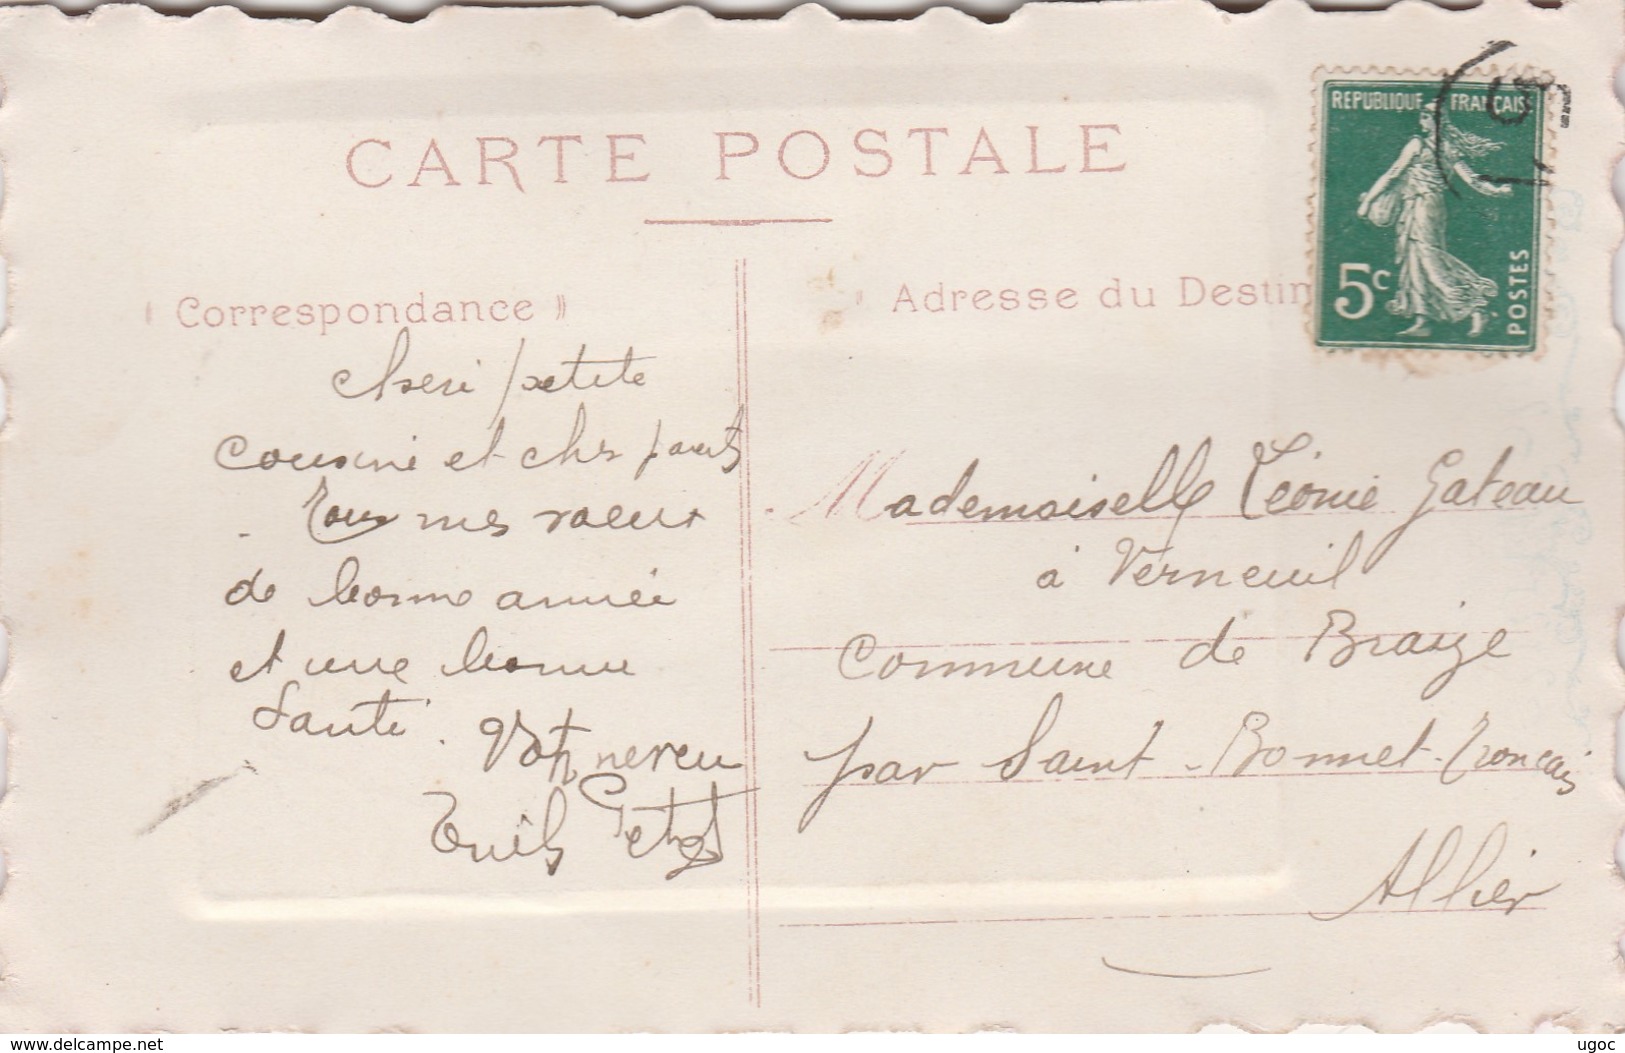 CARTE POSTALE
Correspondance
Adresse du Destin
REPUBLIQUE FRANÇAIS
5c
POSTES
cheri petite
cousine et chrs parts
Tous mes voeux
de bonne année
et une bonne
Santé.
Votr neveu
Mademoiselle Léonie Gateau
à Verneuil
Commune de Braize
par Saint-Bonnet-Tronçais
Allier
www.delcampe.net
ugoc